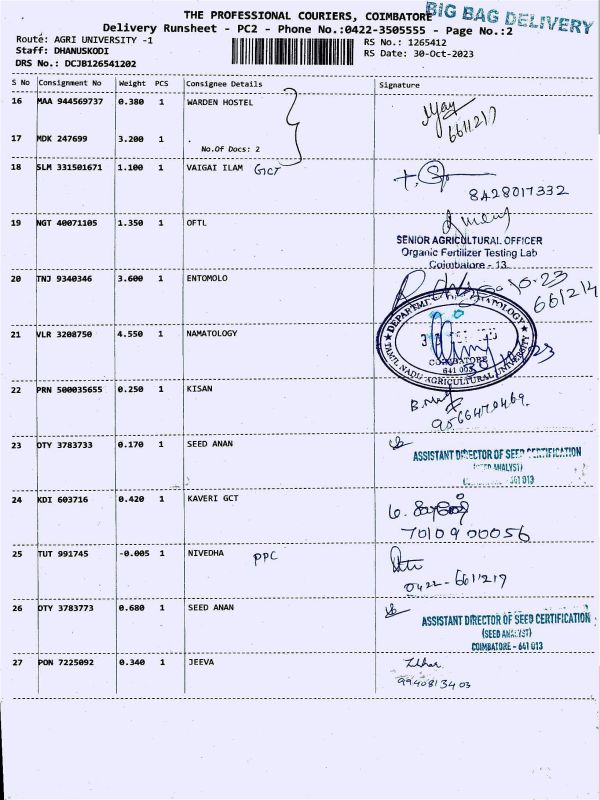 THE PROFESSIONAL COURIERS, COIMBATORE
BIG BAG DELIVERY
Delivery Runsheet - PC2 - Phone No.:0422-3505555 - Page No.:2
Route: AGRI UNIVERSITY -1
RS No.: 1265412
Staff: DHANUSKODI
RS Date: 30-Oct-2023
DRS No.: DCJB126541202
S No Consignment No Weight PCS Consignee Details Signature
16 MAA 944569737 0.380 1 WARDEN HOSTEL
6611217
17 MDK 247699 3.200 1 .
No.Of Docs: 2
18 SLM 331501671 1.100 1 VAIGAI ILAM GCT
8428017332
19 NGT 40071105 1.350 1 OFTL
SENIOR AGRICULTURAL OFFICER
Organic Fertilizer Testing Lab
Coimbatore - 13
20 TNJ 9340346 3.600 1 ENTOMOLO
661214
21 VLR 3208750 4.550 1 NAMATOLOGY
TAMIL NADU AGRICULTURAL UNIVERSITY
COIMBATORE
641 003
22 PRN 500035655 0.250 1 KISAN
9566479469
23 OTY 3783733 0.170 1 SEED ANAN
ASSISTANT DIRECTOR OF SEED CERTIFICATION
(SEED ANALYST)
641 013
24 KDI 603716 0.420 1 KAVERI GCT
7010900056
25 TUT 991745 -0.005 1 NIVEDHA PPC
0422-6611217
26 OTY 3783773 0.680 1 SEED ANAN
ASSISTANT DIRECTOR OF SEED CERTIFICATION
(SEED ANALYST)
COIMBATORE - 641 013
27 PON 7225092 0.340 1 JEEVA
9940813403